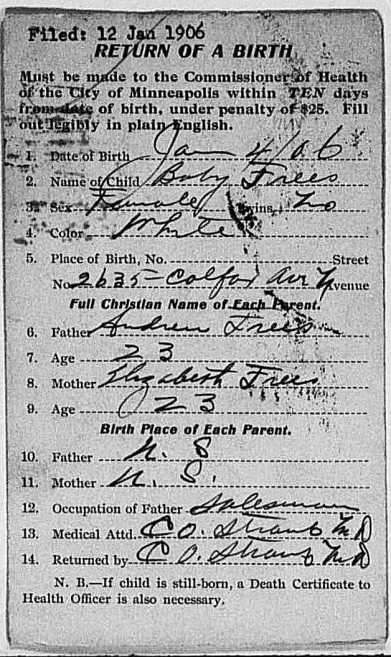 Filed: 12 Jan 1906
RETURN OF A BIRTH
Must be made to the Commissioner of Health
of the City of Minneapolis within TEN days
from date of birth, under penalty of $25. Fill
out legibly in plain English.
1. Date of Birth Jan 4/06
2. Name of Child Baby Frees
3. Sex Female Twins, No
4. Color White
5. Place of Birth, No. Street
No 2635 Colfax Av N Avenue
Full Christian Name of Each Parent.
6. Father Andrew Frees
7. Age 23
8. Mother Elizabeth Frees
9. Age 23
Birth Place of Each Parent.
10. Father U. S
11. Mother U. S.
12. Occupation of Father Salesman
13. Medical Attd. C O. MD
14. Returned by C O. MD
N. B.—If child is still-born, a Death Certificate to
Health Officer is also necessary.